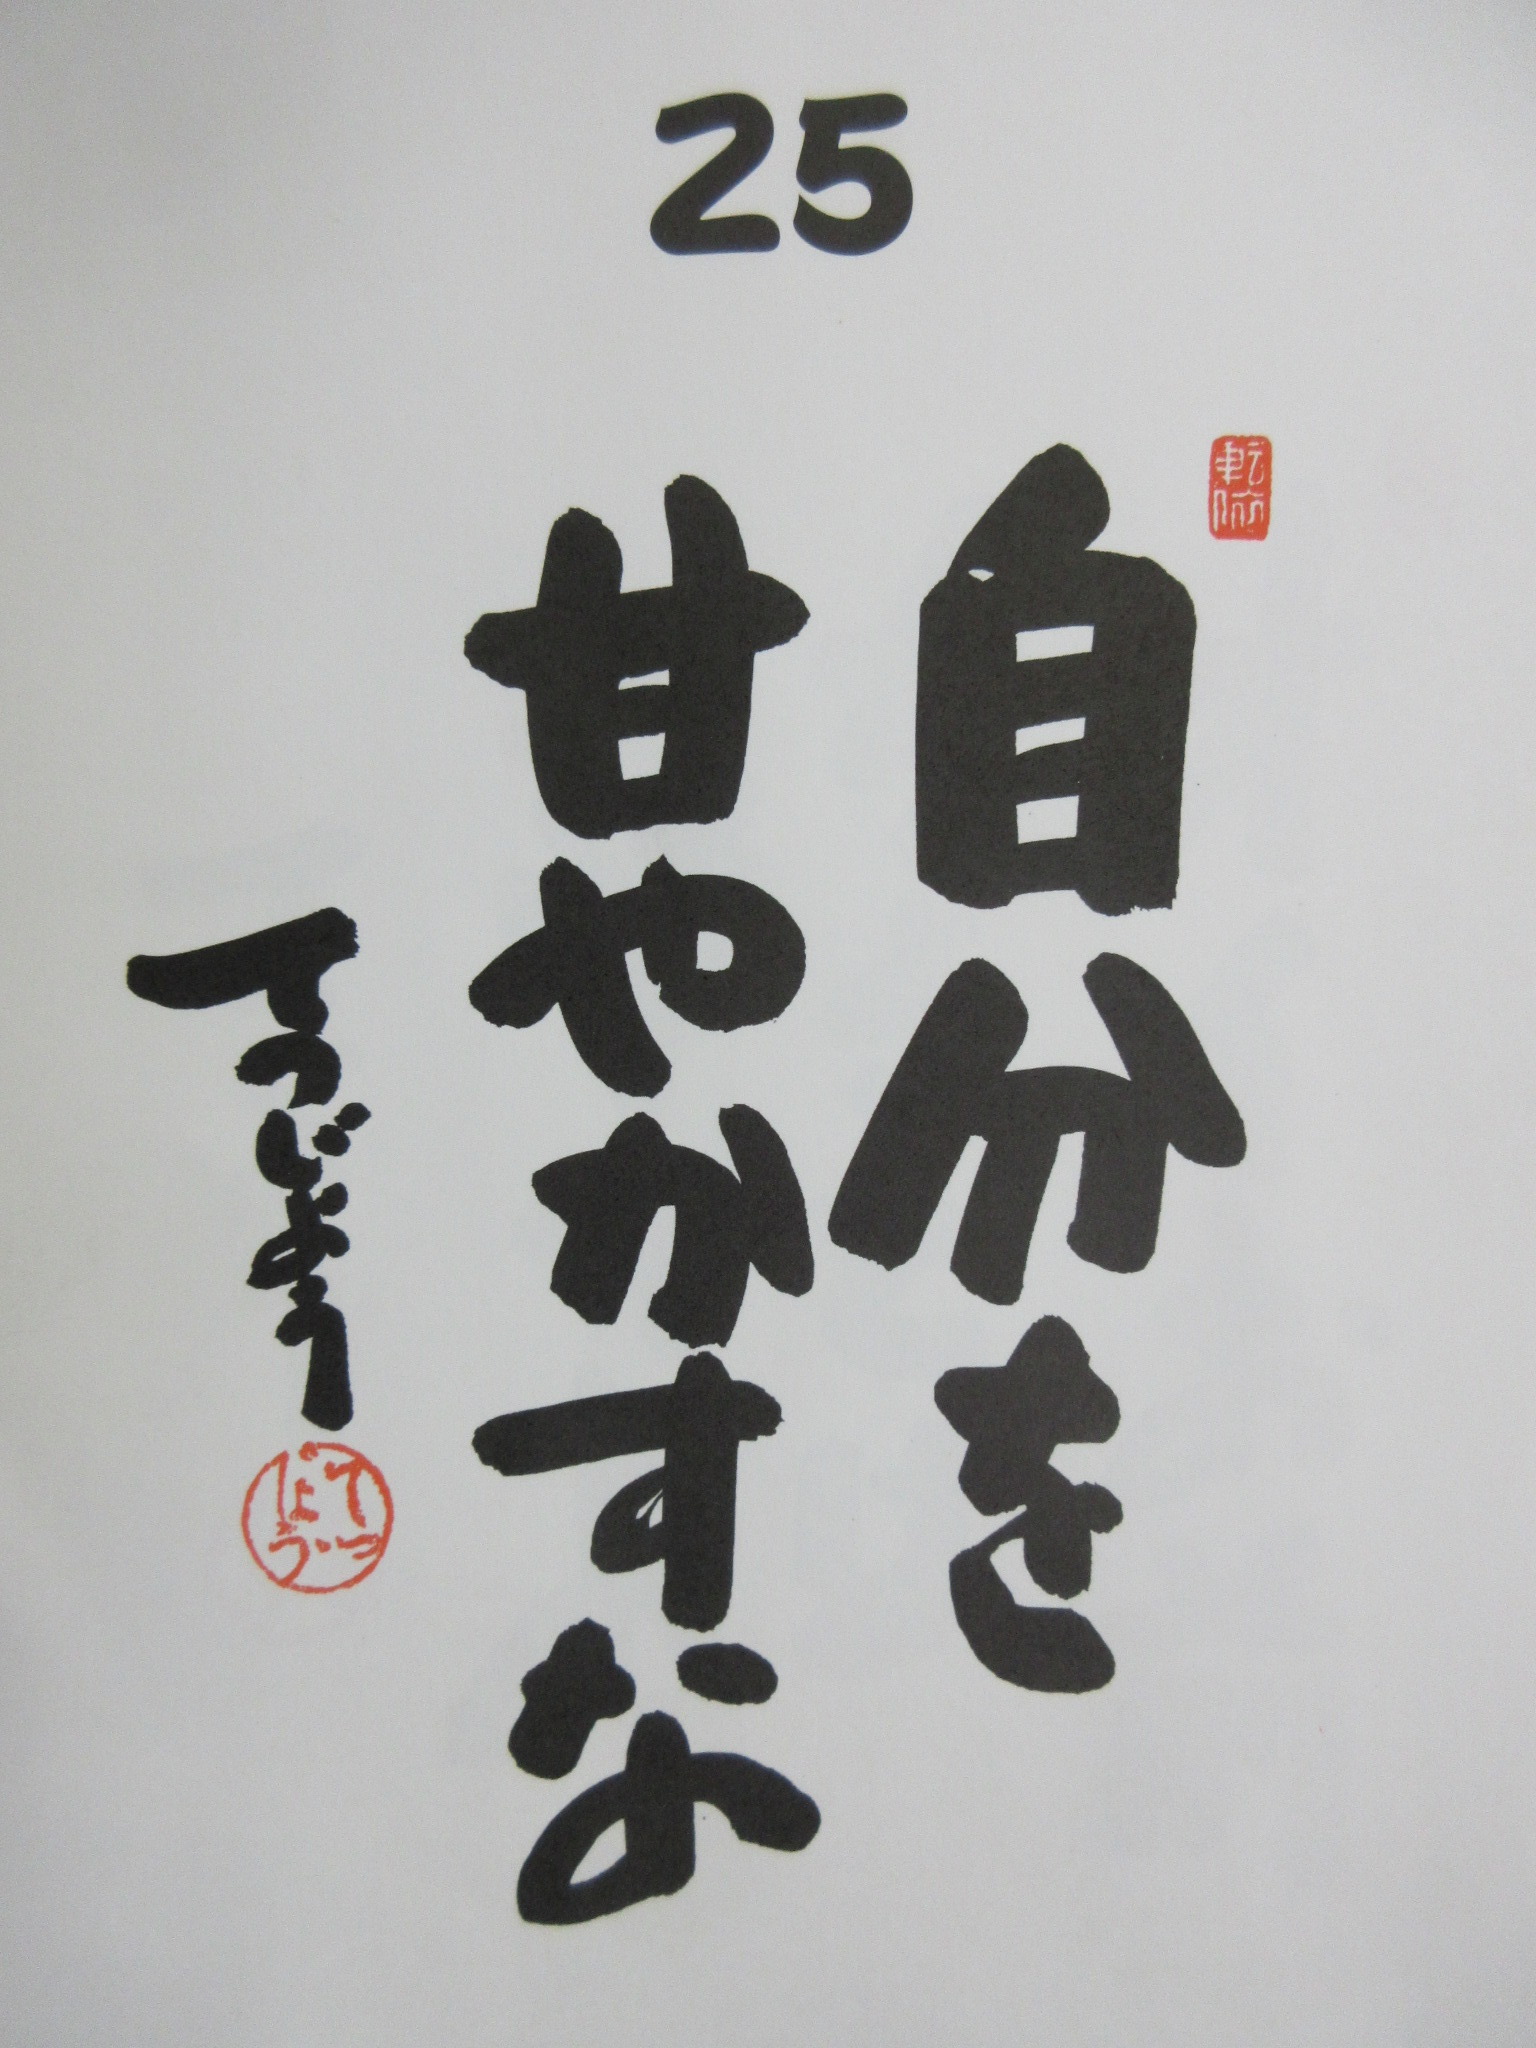 25
自分を
甘やかすな
てつじょう
てつ
じょう